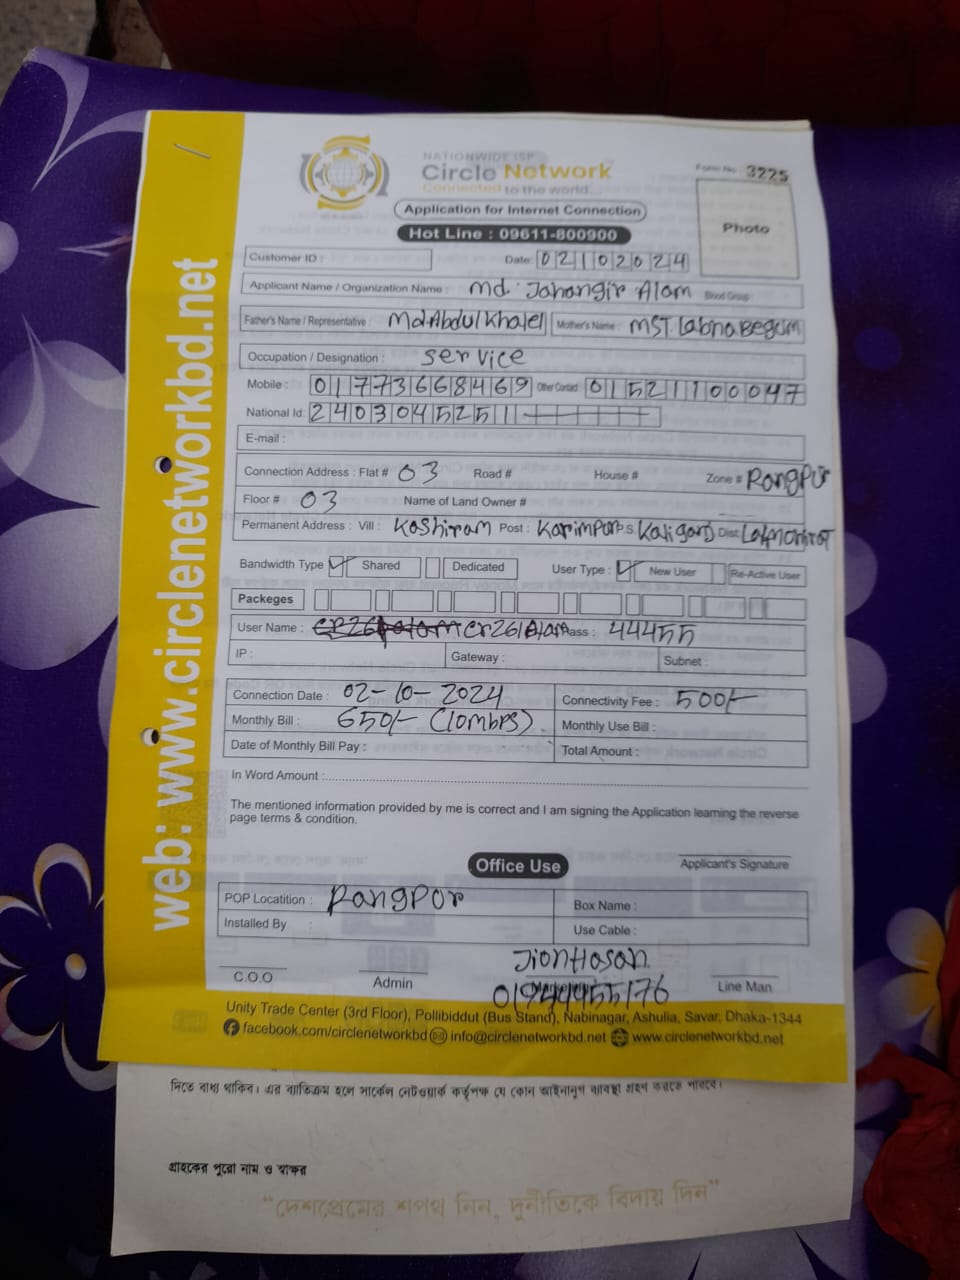 NATIONWIDE ISP
Circle Network
Connected to the world...
Form No. 3225
Application for Internet Connection
Photo
Hot Line : 09611-800900
Customer ID : Date: 02102024
Applicant Name / Organization Name : md. Jahangir Alom Blood Group
Father's Name / Representative : Md Abdul Khalel Mother's Name : MST Labna Begum
Occupation / Designation : Service
Mobile : 01773668469 Other Contact : 01521100047
National Id: 2403045251
E-mail :
Connection Address : Flat # 03 Road # House # Zone # Rangpur
Floor # 03 Name of Land Owner #
Permanent Address : Vill : Koshiram Post : Karimpur P.S. Kaliganj Dist:
Bandwidth Type Shared Dedicated User Type : New User Re-Active User
Packeges
User Name : Cr261 Pass : 44455
IP : Gateway : Subnet :
Connection Date : 02-10-2024 Connectivity Fee : 500/-
Monthly Bill : 650/- (10mbps) Monthly Use Bill :
Date of Monthly Bill Pay : Total Amount :
In Word Amount :
The mentioned information provided by me is correct and I am signing the Application learning the reverse
page terms & condition.
Applicant's Signature
Office Use
POP Locatition : Rangpur Box Name :
Installed By : Use Cable :
JionHosan
01944455176
C.O.O Admin Line Man
Unity Trade Center (3rd Floor), Pollibiddut (Bus Stand), Nabinagar, Ashulia, Savar, Dhaka-1344
facebook.com/circlenetworkbd info@circlenetworkbd.net www.circlenetworkbd.net
web: www.circlenetworkbd.net
দিতে বাধ্য থাকিব। এর ব্যতিক্রম হলে সার্কেল নেটওয়ার্ক কর্তৃপক্ষ যে কোন আইনানুগ ব্যবস্থা গ্রহণ করতে পারবে।
গ্রাহকের পুরো নাম ও স্বাক্ষর
“দেশপ্রেমের শপথ নিন, দুর্নীতিকে বিদায় দিন”